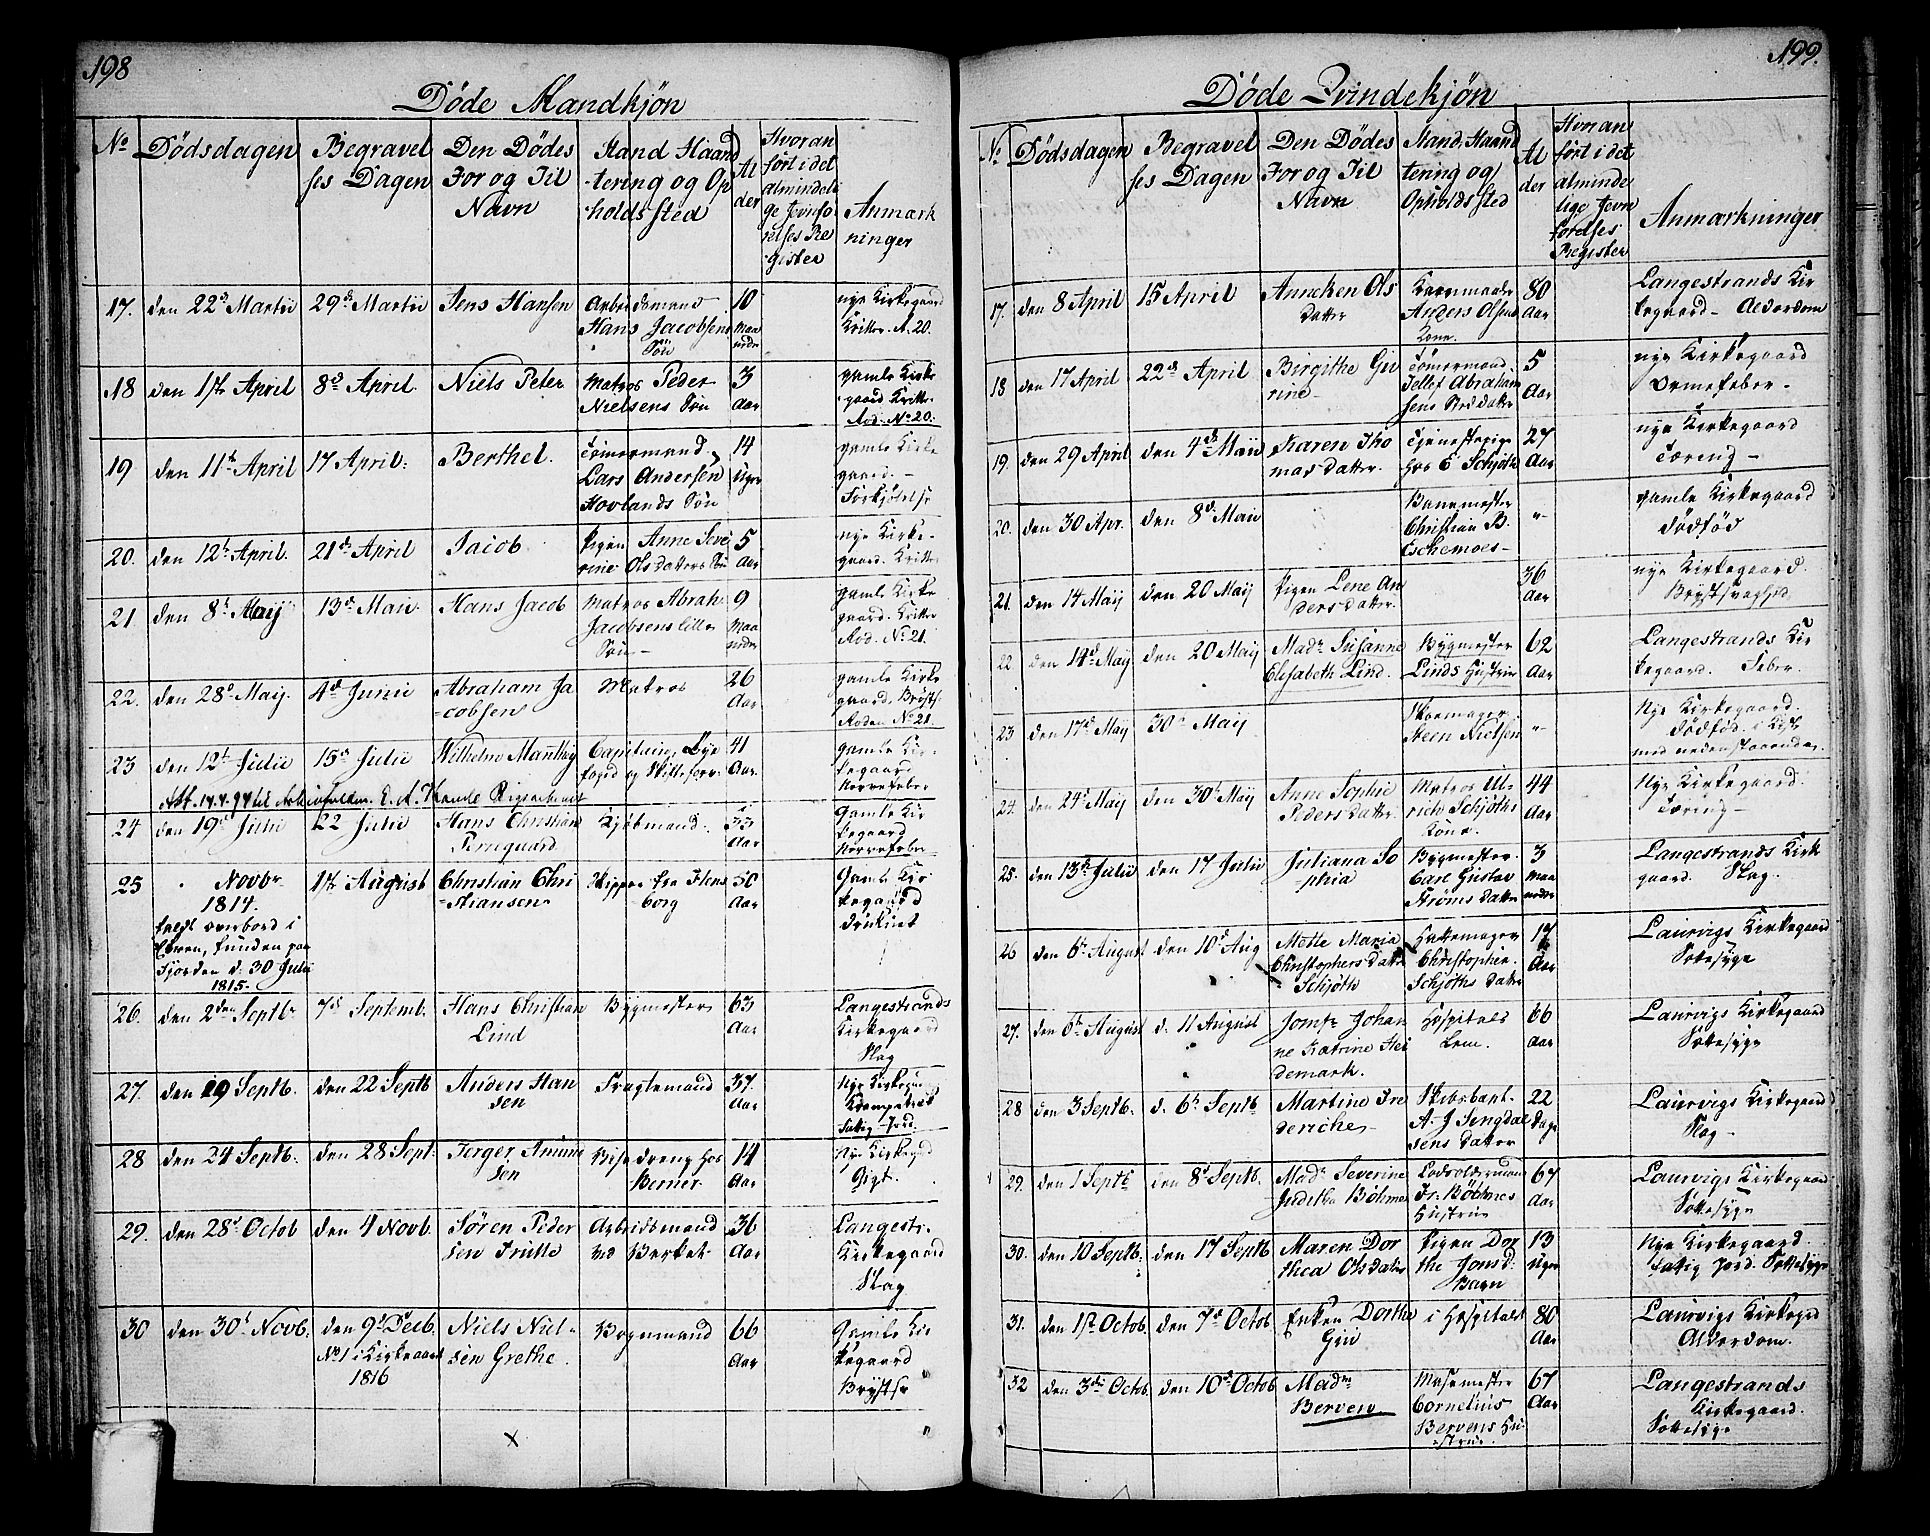 198
Døde Mandkjøn
No
Dødsdagen
Begravel
ses Dagen
Den Dødes
For og Til
Navn
Stand Haand
tering og Op
holdssted
Al
der
Hvor an
ført i det
almindeli
ge Jevnfø
relses Re
gister
Anmærk
ninger
17. den 22d Martii 29d Martii Jens Hansen
Arbeidsmand
Hans Jacobsens
Søn
10
Maa
neder
nye Kirkegaard
18 den 1ste April 8d April Niels Peter
Matros Peder
Nielsens Søn
3
Aar
gamle Kirke
gaard
Rod. No 20.
19 den 11te April 17 April. Berthel.
Tømermand
Lars Andersen
Hovlands Søn
14
Uger
gamle Kirke
gaard.
Forkjølelse
20. den 12te April. 21d April Jacob
Pigen Anne Seve
rine Olsdatters Søn
5
Aar
nye Kirke-
gaard.
21 den 8de Maij 13d Maii Hans Jacob
Matros Abrah:
Jacobsens lille
Søn
9
Maa
neder
gamle Kirke
gaard.
Rod. No 21.
22. den 28d Maij. 4d Junii Abraham Ja
cobsen
Matros
26
Aar.
gamle Kirke
gaard. Brysts.
Roden No 21.
23 den 12te Julii 15d Julii Wilhelm Manthey
Capitain, Bye
foged og Skifteforv.
41
Aar.
gamle Kir-
kegaard
Nervefeber
24 den 19d Julii 22 Julii Hans Christian
Kjøbmand.
33
Aar
Gamle Kir
kegaard
Nervefeber
25 Novbr
1814.
faldt overbord i
funden paa
Fjorden d: 30 Julii
1815.
1ste August Christian Chri
stiansen
Skipper fra Flens
borg
50
Aar
Gamle Kir
kegaard
druknet
26. den 2den Septbr 7d Septemb. Hans Christian
Lind
Bygmester
63
Aar
Langestrands
Kirkegaard
Slag
27. den 19 Septb. den 22 Septb Anders Han
sen
Fragtemand
37.
Aar
Nye Kirkegrd
28 den 24 Septb. den 28 Sept. Jørger Amun
sen
Visedreng hos
Berner
14
Aar
Nye Kirkegrd
Gigt.
29. den 28d Octob den 4 Novb. Søren Peder
sen
Arbeidsmand
36
Aar
Langestr.
Kirkegaard
Slag
30 den 30t Novb. den 9d Decb.
No 1 i Kirkeaaret
1816
Niels Niel-
sen Grethe.
Vognmand
66
Aar
Gamle Kir
kegaard
Brystsv
x
199.
Døde Qvindekjøn
No
Dødsdagen
Begravel
ses Dagen
Den Dødes
For og Til
Navn
Stand, Haand
tering og
Opholdssted
Al
der
Hvor an
ført i det
alminde
lige Jevn
førelses
Register
Anmærkninger
17. den 8 April 15 April Anneken Ols
datter
Anders Olsens
Kone.
80
Aar
Langestrands Kir
kegaard - Alderdom
18 den 17 April 22d April Birgithe Gu
rine
Tømermand
Tellef Abraham
sens datter
5
Aar
nye Kirkegaard
Ormefeber-
19. den 29 April den 4d Maii Karen Tho
masdatter.
Tjenestepige
hos E Schjøth
27
Aar
nye Kirkegaard
Tæring -
20. den 30 Apr. den 8d Maii
Christian B.
Eschemoes-
"
gamle Kirkegaard
dødfød
21. den 14 Maij den 20 Maij Pigen Lene An
dersdatter.
36
Aar.
nye Kirkegaard.
Brystsvaghed
22 den 14d Maij den 20 Maij Madm Susanne
Elisabeth Lind.
Bygmester
Linds Hustrue
62
Aar.
Langestrands Kir
kegaard. Feber.
23 den 17d Maij 30d Maij
Skomager
Steen Nielsen
"
Nye Kirkegaard.
dødfød. i Kiste
med nedenstaaende.
24. den 24d Maij den 30d Maij Anne Sophie
Pedersdatter.
Matros Ul
rich Schjøths
Kone.
44
Aar
Nye Kirkegaard.
Tæring-
25. den 13d Julii den 17 Julii Juliana So
phia
Bygmester
Carl Gustav
Strøms datter
3
Maa
neder
Langestrands Kirk
gaard. Slag.
26 den 6te August den 10d Aug Mette Maria
Christophersdatter
Schjøth
Hattemager
Christopher
Schjøths datter
17
Aar
Laurvigs Kirkegaard
Sottesyge
27. den 6te August d. 11 August Jomfr Johan
ne Katrine Hei
demark.
Hospitals
Lem.
66
Aar
Laurvigs Kirkegaard
Sottesyge
28 den 3 Septb. d. 6te Septb Martine Fre
deriche
A. J
sens datter
22
Dage
Laurvigs Kirkegaard
Slag -
29. den 1 Septb den 8d Septb. Madm Severine
Juditha Bøhmer
Lodsolderman
Fr. Bøhmes
Hustrue
67
Aar
Laurvigs Kirkegaard
Sottesyge
30. den 10 Septb. den 17 Septb Maren Dor
thea Olsdatter
Pigen Dor
the Jonsd:
Barn
13
Uger
Nye Kirkegaard.
fattig Jord. Sottesyge
31. den 1st Octob. den 7d Octob Enken Dorthe
Giu
i Hospitalet 80
Aar
Laurvigs Kirkegrd
Alderdom.
32 den 3die Octob. den 10d Octob Madm
Berven
Cornelius
Bervens Hu
strue.
67
Aar
Langestrands
Kirkegaard.
Sottesyge